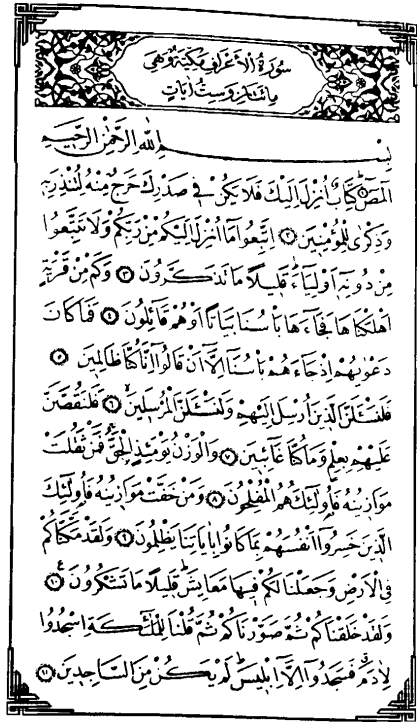 سُورَةُ الْاَعْرَافِ مَكِّيَّةٌ وَهِىَ
مِائَتَانِ وَسِتُّ اٰيَاتٍ
بِسْمِ اللّٰهِ الرَّحْمٰنِ الرَّحِيمِ
الٓمٓصٓ ﴿١﴾ كِتَابٌ اُنْزِلَ اِلَيْكَ فَلَا يَكُنْ فِى صَدْرِكَ حَرَجٌ مِنْهُ لِتُنْذِرَ بِهٖ
وَذِكْرٰى لِلْمُؤْمِنِينَ ﴿٢﴾ اِتَّبِعُوا مَٓا اُنْزِلَ اِلَيْكُمْ مِنْ رَبِّكُمْ وَلَا تَتَّبِعُوا
مِنْ دُونِهٖٓ اَوْلِيَٓاءَ قَلِيلًا مَا تَذَكَّرُونَ ﴿٣﴾ وَكَمْ مِنْ قَرْيَةٍ
اَهْلَكْنَاهَا فَجَٓاءَهَا بَأْسُنَا بَيَاتًا اَوْ هُمْ قَٓائِلُونَ ﴿٤﴾ فَمَا كَانَ
دَعْوٰيهُمْ اِذْ جَٓاءَهُمْ بَأْسُنَٓا اِلَّٓا اَنْ قَالُٓوا اِنَّا كُنَّا ظَالِمِينَ ﴿٥﴾
فَلَنَسْـَٔلَنَّ الَّذِينَ اُرْسِلَ اِلَيْهِمْ وَلَنَسْـَٔلَنَّ الْمُرْسَلِينَ ﴿٦﴾ فَلَنَقُصَّنَّ
عَلَيْهِمْ بِعِلْمٍ وَمَا كُنَّا غَٓائِبِينَ ﴿٧﴾ وَالْوَزْنُ يَوْمَئِذٍ الْحَقُّ فَمَنْ ثَقُلَتْ
مَوَازِينُهُ فَاُو۬لٰٓئِكَ هُمُ الْمُفْلِحُونَ ﴿٨﴾ وَمَنْ خَفَّتْ مَوَازِينُهُ فَاُو۬لٰٓئِكَ
الَّذِينَ خَسِرُٓوا اَنْفُسَهُمْ بِمَا كَانُوا بِاٰيَاتِنَا يَظْلِمُونَ ﴿٩﴾ وَلَقَدْ مَكَّنَّاكُمْ
فِى الْاَرْضِ وَجَعَلْنَا لَكُمْ فِيهَا مَعَايِشَ قَلِيلًا مَا تَشْكُرُونَ ﴿١٠﴾
وَلَقَدْ خَلَقْنَاكُمْ ثُمَّ صَوَّرْنَاكُمْ ثُمَّ قُلْنَا لِلْمَلٰٓئِكَةِ اسْجُدُوا
لِاٰدَمَ فَسَجَدُٓوا اِلَّٓا اِبْلِيسَ لَمْ يَكُنْ مِنَ السَّاجِدِينَ ﴿١١﴾